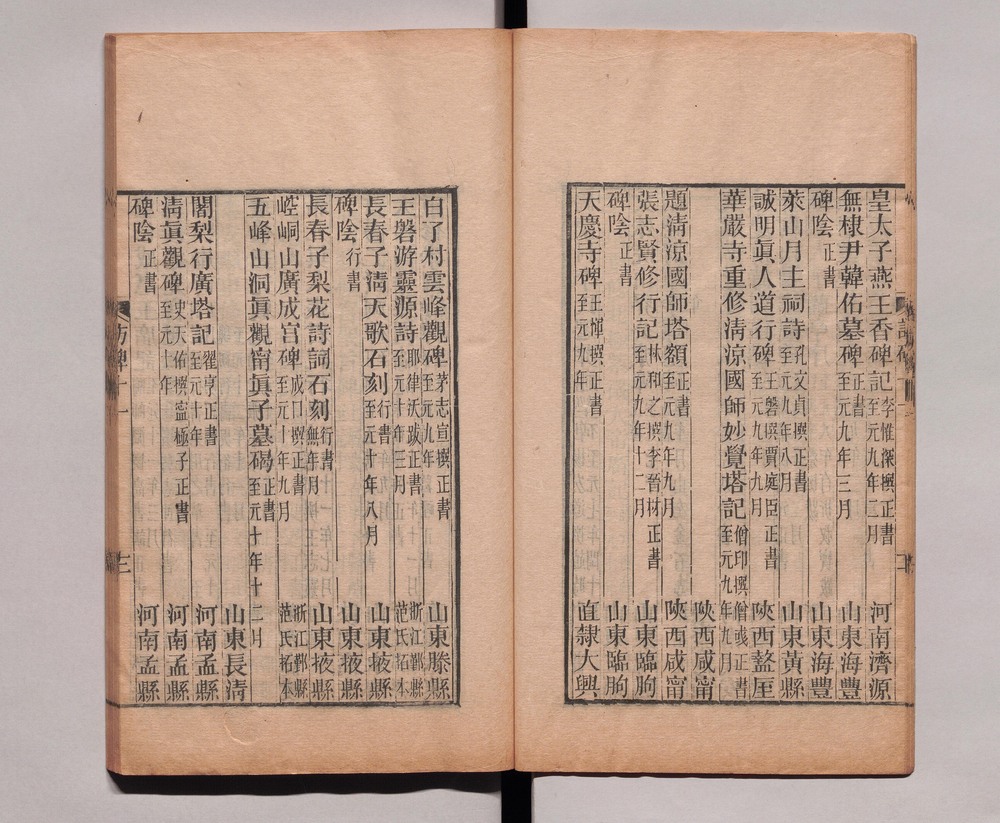 皇太子燕王香碑記 李惟深撰正書 至元九年二月 河南濟源
無棣尹韓佑墓碑 正書 至元九年三月 山東海豐
碑陰 正書 山東海豐
萊山月主祠詩 孔文貞撰正書 至元九年八月 山東黃縣
誠明眞人道行碑 王磐撰賈庭臣正書 至元九年九月 陝西盩厔
華嚴寺重修淸涼國師妙覺塔記 僧印撰僧彧正書 至元九年九月
陝西咸甯
題淸涼國師塔額 正書 至元九年九月 陝西咸甯
張志賢修行記 林和之撰李晉材正書 至元九年十二月 山東臨朐
碑陰 正書 山東臨朐
天慶寺碑 王惲撰正書 至元九年 直隸大興
訪碑
白了村雲峰觀碑 茅志宣撰正書 至元九年 山東滕縣
王磐游靈源詩 耶律沃跋正書 至元十年三月 浙江鄞縣范氏拓本
長春子淸天歌石刻 行書 至元十年八月 山東掖縣
碑陰 行書 山東掖縣
長春子梨花詩詞石刻 行書 無年月 山東掖縣
崆峒山廣成宮碑 成口撰正書 至元十年九月 浙江鄞縣范氏拓本
五峰山洞眞觀甯眞子墓碣 正書 至元十年十二月
山東長淸
闍梨行廣塔記 翟亨正書 至元十年 河南孟縣
淸眞觀碑 史天佑撰寧極子正書 至元十年 河南孟縣
碑陰 正書 河南孟縣
訪碑十一